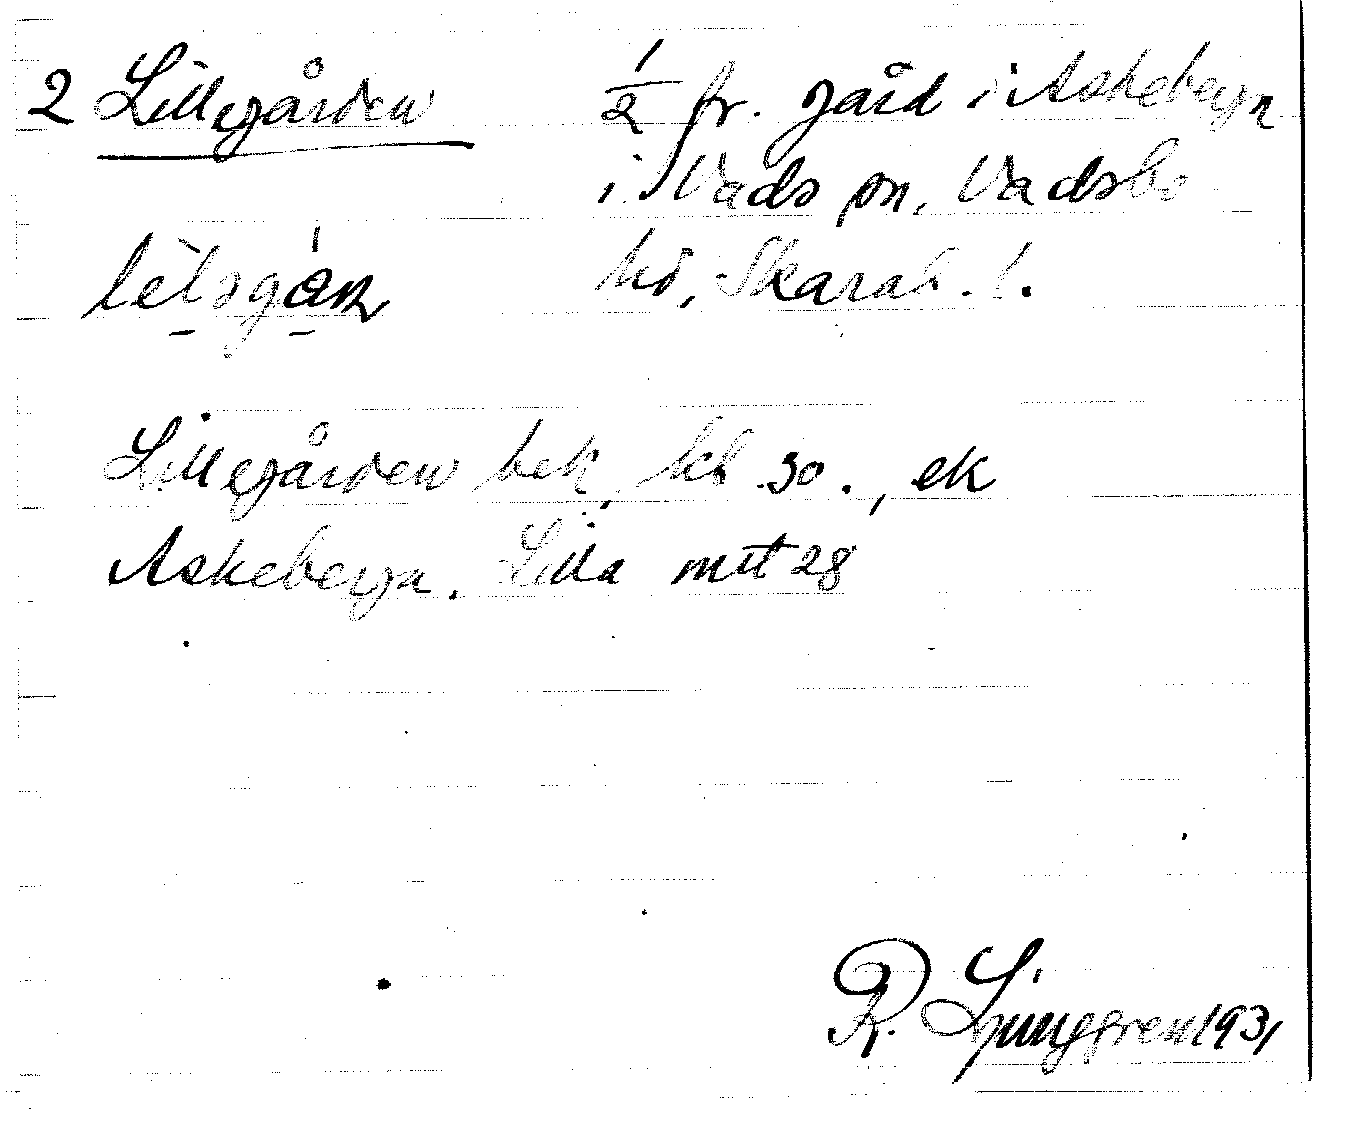 2 Lillegården
1/2 fr. gård i Askeberga
i Vads sn, Vadsbo
hd, Skarab. l.
Lillegården bek, kbl 30., ek
Askeberga. Lilla mtl 28
R. Ljunggren 1931